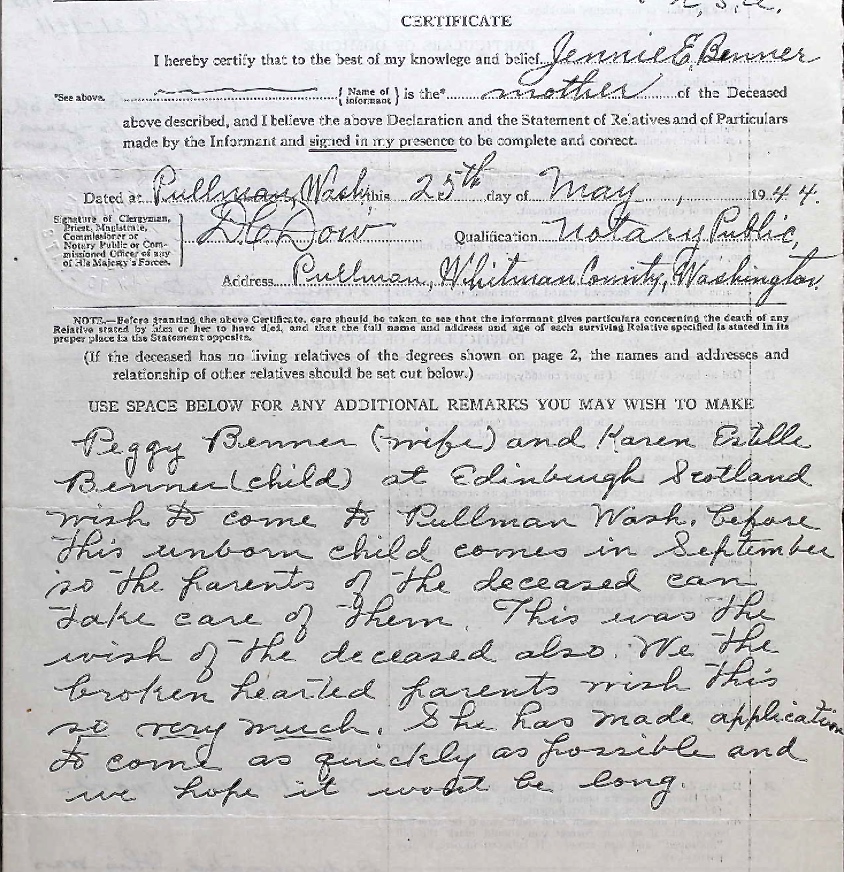 U.S.A.
CERTIFICATE
I hereby certify that to the best of my knowlege and belief Jennie E. Benner
*See above. {Name of informant} is the* mother of the Deceased
above described, and I believe the above Declaration and the Statement of Relatives and of Particulars
made by the Informant and signed in my presence to be complete and correct.
Dated at Pullman, Wash. this 25th day of May, 1944.
Signature of Clergyman,
Priest, Magistrate,
Commissioner or
Notary Public or Com-
missioned Officer of any
of His Majesty's Forces.
D C Dow Qualification Notary Public,
Address Pullman, Whitman County, Washington.
NOTE.—Before granting the above Certificate, care should be taken to see that the informant gives particulars concerning the death of any
Relative stated by him or her to have died, and that the full name and address and age of each surviving Relative specified is stated in its
proper place in the Statement opposite.
(If the deceased has no living relatives of the degrees shown on page 2, the names and addresses and
relationship of other relatives should be set out below.)
USE SPACE BELOW FOR ANY ADDITIONAL REMARKS YOU MAY WISH TO MAKE
Peggy Benner (wife) and Karen Estelle
Benner (child) at Edinburgh Scotland
wish to come to Pullman Wash. before
this unborn child comes in September
so the parents of the deceased can
take care of them. This was the
wish of the deceased also. We the
broken hearted parents wish this
so very much. She has made application
to come as quickly as possible and
we hope it wont be long.